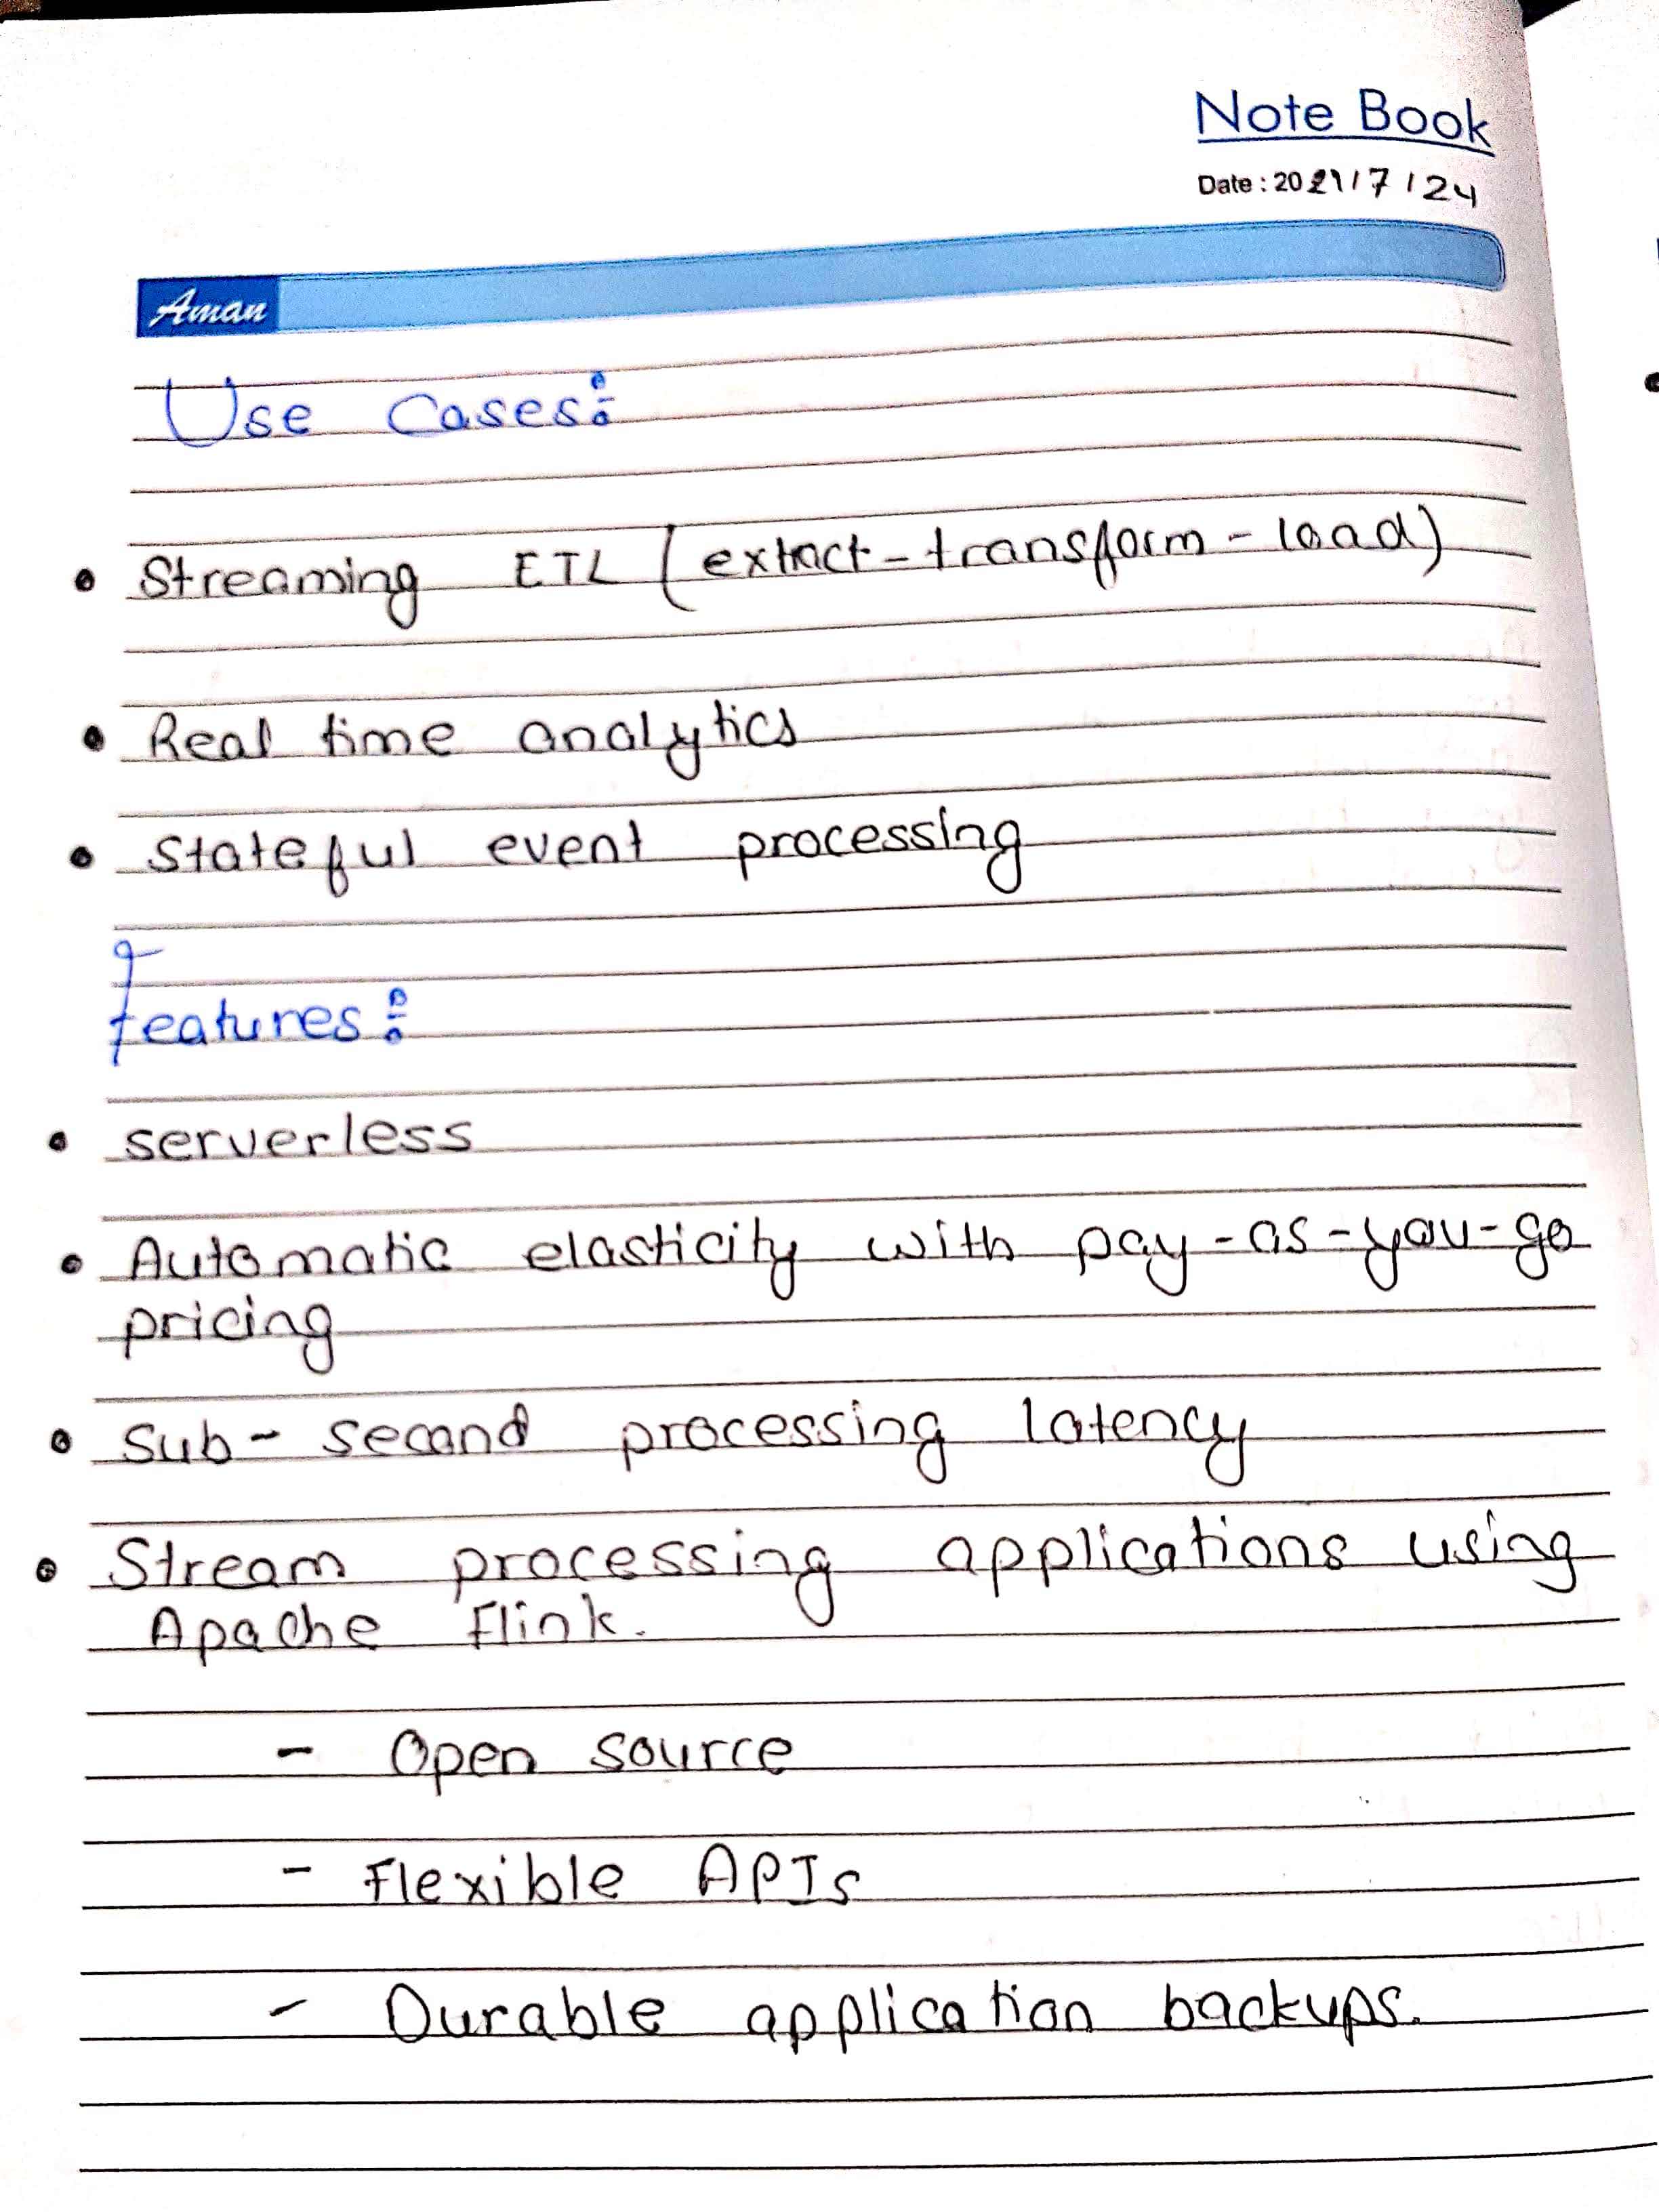 Note Book
Date : 2021/7/24
Aman
Use Cases:
• Streaming ETL (extract-transform-load)
• Real time analytics
• Stateful event processing
features:
• serverless
• Automatic elasticity with pay-as-you-go
pricing
• Sub-second processing latency
• Stream processing applications using
Apache Flink.
- Open source
- Flexible APIs
- Durable application backups.